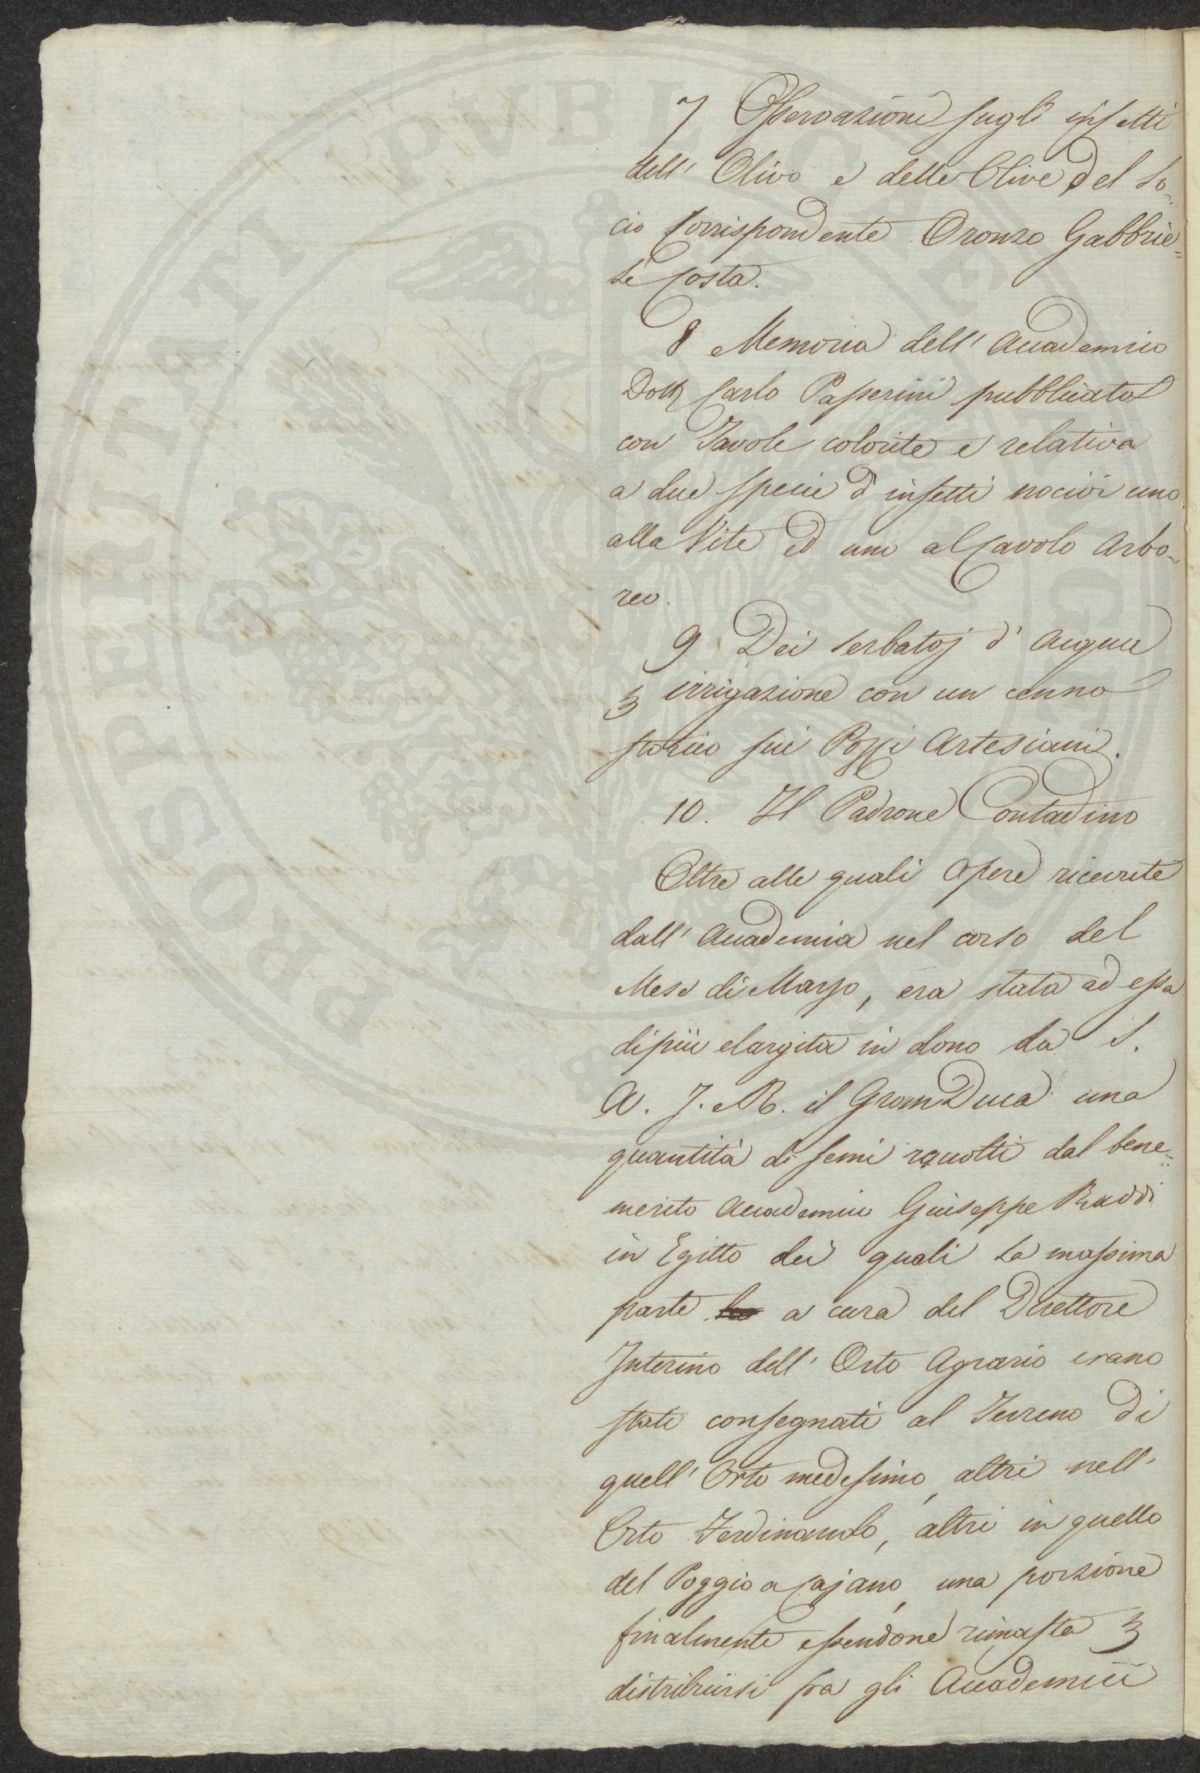 7 Osservazioni sugl' insetti
dell' Olivo e delle Olive del So-
cio Corrispondente Oronzo Gabbrie=
le Costa.
8 Memoria dell' Accademico
Dott. Carlo Passerini pubblicata
con Tavole colorite e relativa
a due specie d'insetti nocivi uno
alla Vite ed uno al Cavolo Arbo-
reo.
9 Dei serbatoj d' acqua
irrigazione con un cenno
storico sui Pozzi Artesiani.
10. Il Padrone Contadino
Oltre alle quali opere ricevute
dall' Accademia nel corso del
Mese di Marzo, era stata ad essa
dipiù elargita in dono da S.
A. I. R. il Gran Duca una
quantità di semi racolti dal bene=
merito Accademico Giuseppe Raddi
in Egitto dei quali la massima
parte a cura del Direttore
Interino dell' Orto Agrario erano
stati consegnati al Terreno di
quell' Orto medesimo, altri nell'
Orto Ferdinando, altri in quello
del Poggio a Cajano, una porzione
finalmente essendone rimasta
distribuirsi fra gli Accademici
PROSPERITATI PVBLICAE